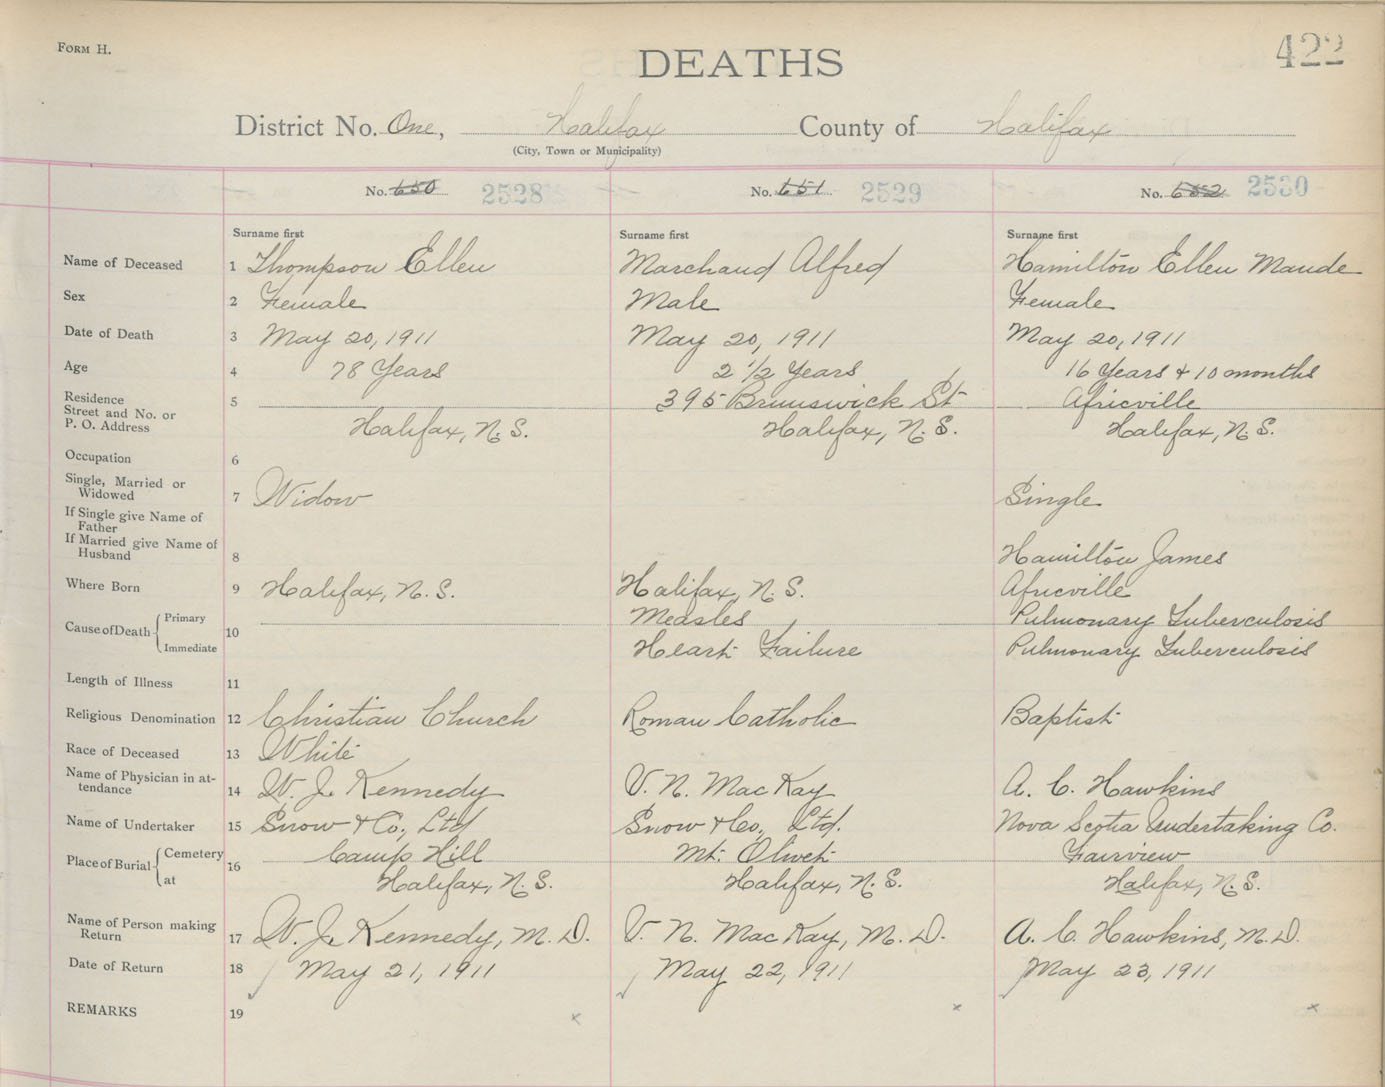 FORM H.
422
DEATHS
District No. One, Halifax County of Halifax
(City, Town or Municipality)
No. 650 2528 No. 651 2529 No. 652 2530
Surname first Surname first Surname first
Name of Deceased 1 Thompson Ellen Marchand Alfred Hamilton Ellen Maude
Sex 2 Female Male Female
Date of Death 3 May 20, 1911 May 20, 1911 May 20, 1911
Age 4 78 Years 2 1/2 Years 16 Years + 10 months
Residence 5 395 Brunswick St Africville
Street and No. or
P. O. Address Halifax, N. S. Halifax, N. S. Halifax, N. S.
Occupation 6
Single, Married or
Widowed 7 Widow Single
If Single give Name of
Father
If Married give Name of
Husband 8 Hamilton James
Where Born 9 Halifax, N. S. Halifax, N. S. Africville
Cause of Death Primary 10 Measles Pulmonary Tuberculosis
Immediate Heart Failure Pulmonary Tuberculosis
Length of Illness 11
Religious Denomination 12 Christian Church Roman Catholic Baptist
Race of Deceased 13 White
Name of Physician in at-
tendance 14 W. J. Kennedy V. N. MacKay A. C. Hawkins
Name of Undertaker 15 Snow & Co., Ltd Snow & Co., Ltd. Nova Scotia Undertaking Co.
Place of Burial Cemetery 16 Camp Hill Mt. Olivet Fairview
at Halifax, N. S. Halifax, N. S. Halifax, N. S.
Name of Person making
Return 17 W. J. Kennedy, M. D. V. N. MacKay, M. D. A. C. Hawkins, M. D.
Date of Return 18 May 21, 1911 May 22, 1911 May 23, 1911
REMARKS 19 x x x